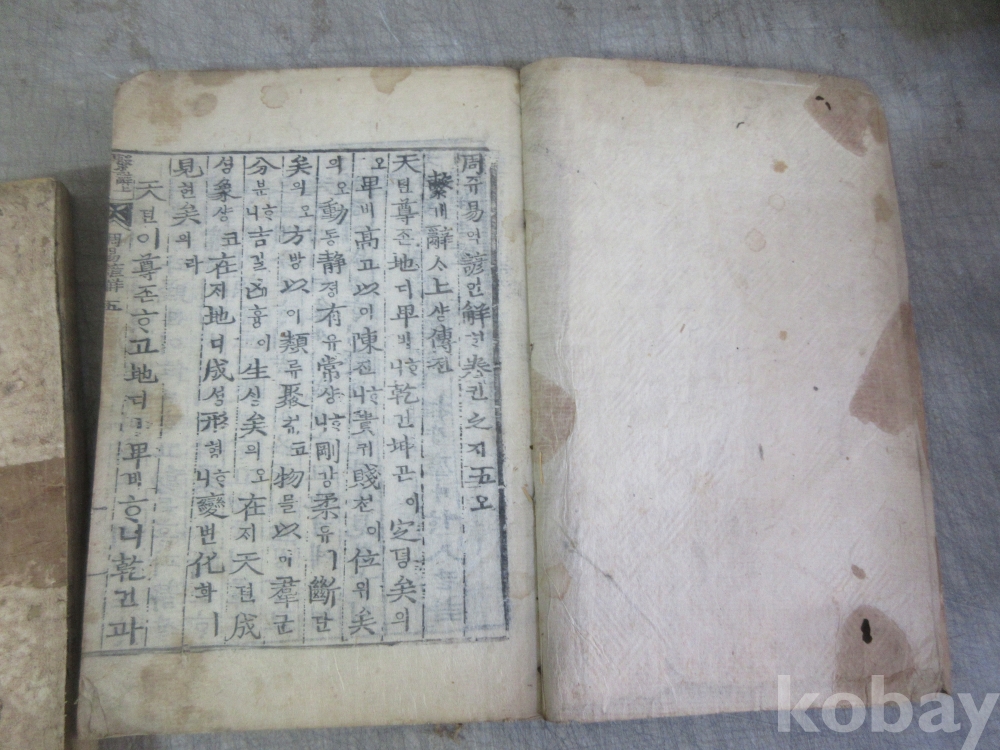 周쥬易역諺언解ᄒᆡ卷권之지五오
繫계辭ᄉ上샹傳젼
天텬尊존地디卑비ᄒᆞ니乾건坤곤이定뎡矣의
오卑비高고以이陳진ᄒᆞ니貴귀賤쳔이位위矣
의오動동靜졍有유常샹ᄒᆞ니剛강柔유ㅣ斷단
矣의오方방以이類류聚췌코物믈以이羣군
分분ᄒᆞ니吉길凶흉이生ᄉᆡᆼ矣의오在ᄌᆡ天텬成
셩象샹코在ᄌᆡ地디成셩形형ᄒᆞ니變변化화ㅣ
見현矣의라
天텬이尊존ᄒᆞ고地디ㅣ卑비ᄒᆞ니乾건과
周易諺解 五
kobay